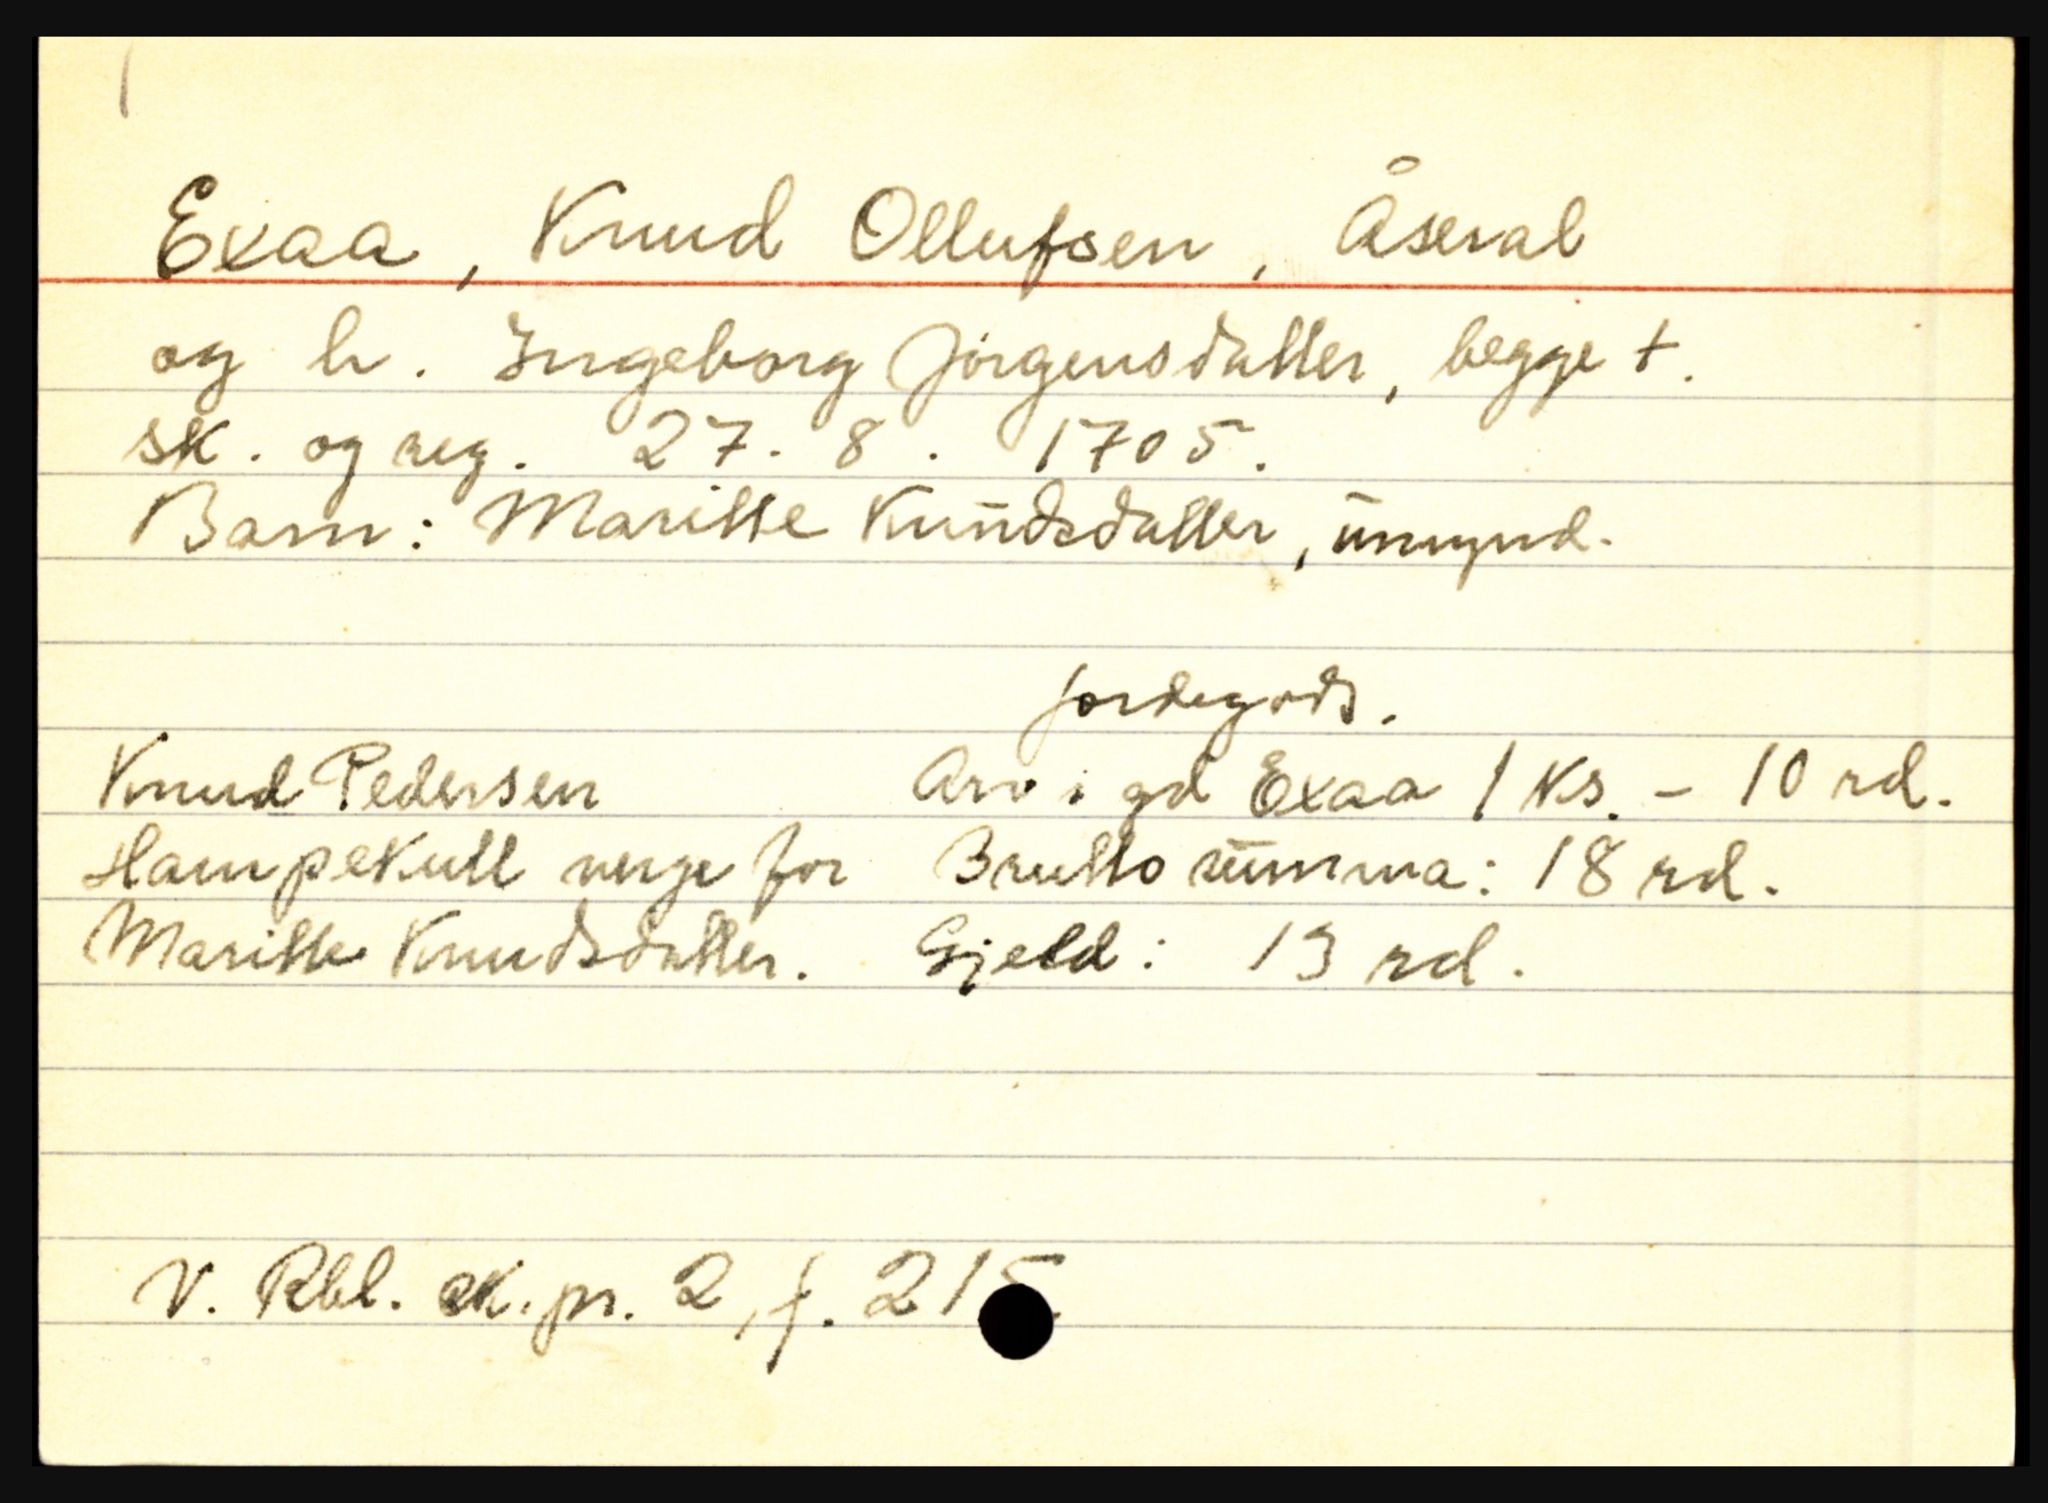 Exaa, Knud Ollufsen, Åseral
og h. Ingeborg Jörgensdatter, begge †.
sk. og reg. 27. 8. 1705.
Barn: Maritte Knudsdatter, umynd.
Jordegods.
Knud Pedersen Arv i gd Exaa 1 ks. - 10 rd.
Hampekull verge for Brutto summa: 18 rd.
Maritte Knudsdatter. Gjeld: 13 rd.
V. Rbl. sk. pr. 2, f. 215.